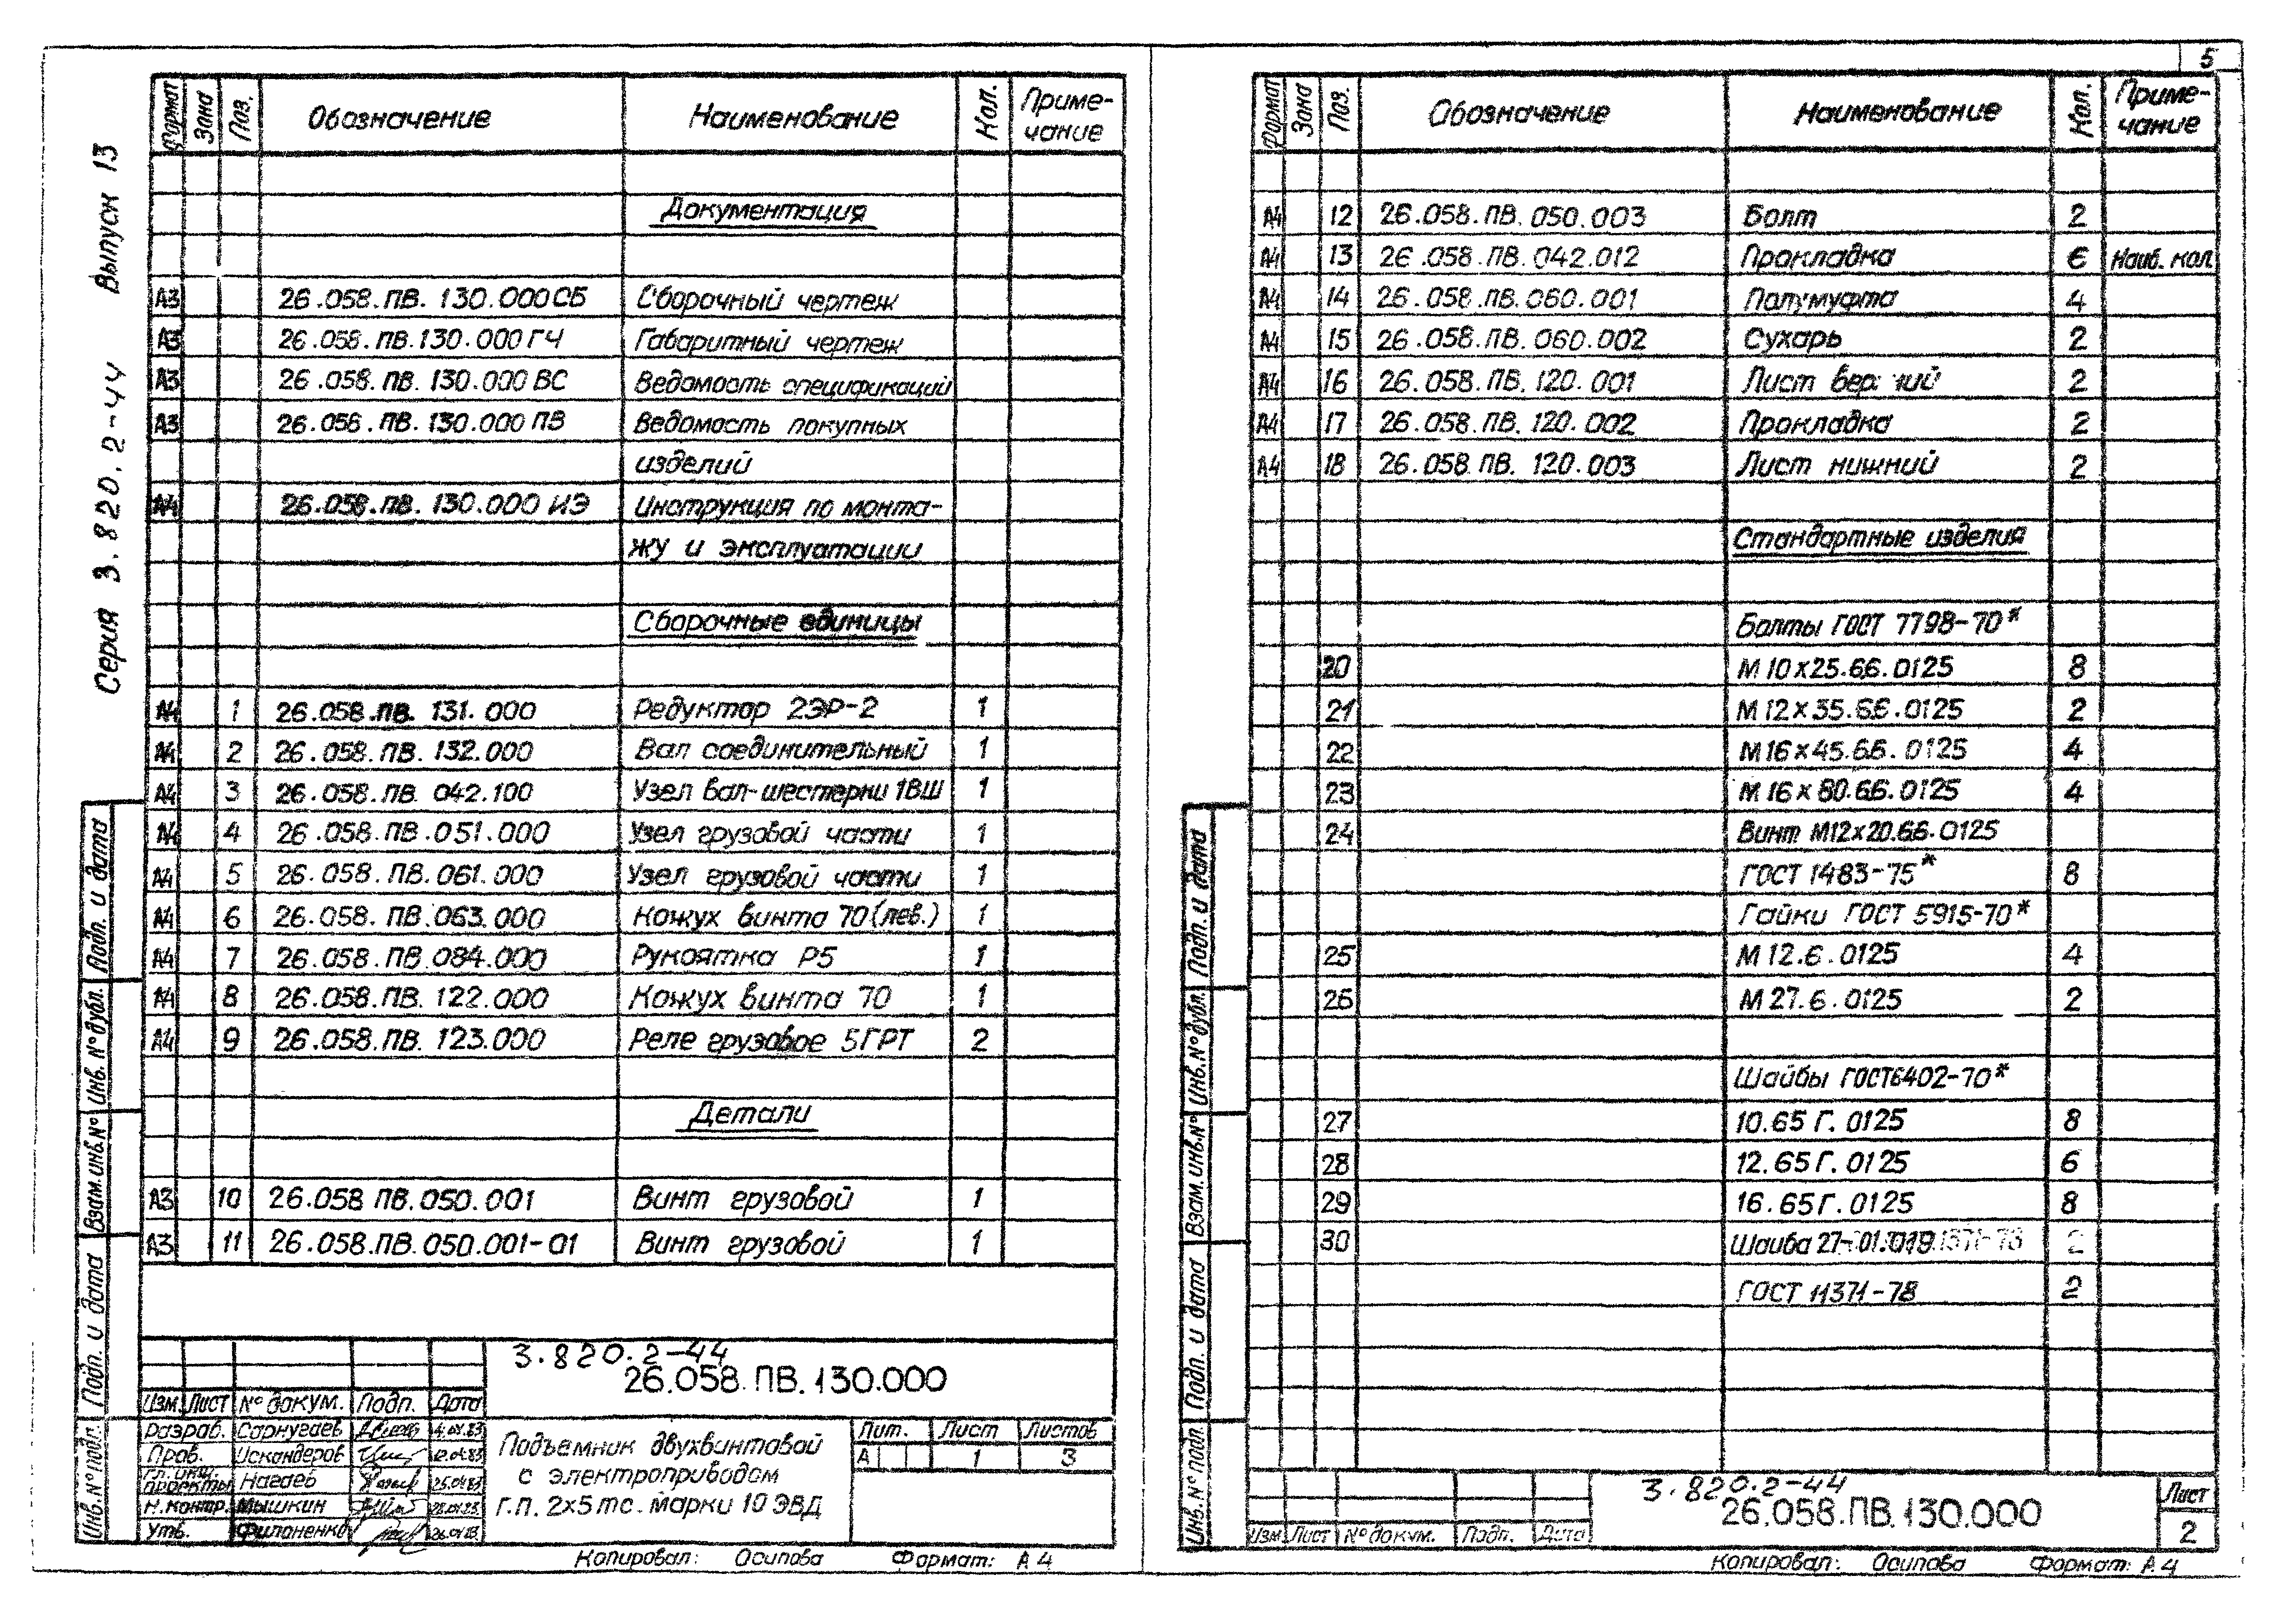 5
Серия 3.820.2-44 Выпуск 13
Формат Зона Поз. Обозначение Наименование Кол. Приме-
чание
Документация
А3 26.058.ПВ.130.000СБ Сборочный чертеж
А3 26.058.ПВ.130.000ГЧ Габаритный чертеж
А3 26.058.ПВ.130.000ВС Ведомость спецификаций
А3 26.058.ПВ.130.000ПВ Ведомость покупных
изделий
А4 26.058.ПВ.130.000ИЭ Инструкция по монта-
жу и эксплуатации
Сборочные единицы
А4 1 26.058.ПВ.131.000 Редуктор 2ЭР-2 1
А4 2 26.058.ПВ.132.000 Вал соединительный 1
А4 3 26.058.ПВ.042.100 Узел вал-шестерни 1ВШ 1
А4 4 26.058.ПВ.051.000 Узел грузовой части 1
А4 5 26.058.ПВ.061.000 Узел грузовой части 1
А4 6 26.058.ПВ.063.000 Кожух винта 70(лев.) 1
А4 7 26.058.ПВ.084.000 Рукоятка Р5 1
А4 8 26.058.ПВ.122.000 Кожух винта 70 1
А4 9 26.058.ПВ.123.000 Реле грузовое 5ГРТ 2
Детали
А3 10 26.058 ПВ.050.001 Винт грузовой 1
А3 11 26.058.ПВ.050.001-01 Винт грузовой 1
Подп. и дата
Инв. № дубл.
Взам. инв. №
Подп. и дата
Инв. № подл.
3.820.2-44
26.058.ПВ.130.000
Изм. Лист № докум. Подп. Дата
Разраб. Сарнугаев
Пров. Искандеров
Гл. инж.
проекты Нагаев
Н.контр. Мышкин
Утв. Филоненко
Подъемник двухвинтовой
с электроприводом
г.п. 2х5тс. марки 10ЭВД
Лит. Лист Листов
А 1 3
Копировал: Осипова Формат: А4
Формат Зона Поз. Обозначение Наименование Кол. Приме-
чание
А4 12 26.058.ПВ.050.003 Болт 2
А4 13 26.058.ПВ.042.012 Прокладка 6 Наиб. кол
А4 14 26.058.ПВ.060.001 Полумуфта 4
А4 15 26.058.ПВ.060.002 Сухарь 2
А4 16 26.058.ПВ.120.001 Лист верхний 2
А4 17 26.058.ПВ.120.002 Прокладка 2
А4 18 26.058 ПВ.120.003 Лист нижний 2
Стандартные изделия
Болты ГОСТ 7798-70*
20 М10х25.66.0125 8
21 М12х35.66.0125 2
22 М16х45.66.0125 4
23 М16х80.66.0125 4
24 Винт М12х20.66.0125
ГОСТ 1483-75* 8
Гайки ГОСТ 5915-70*
25 М12.6.0125 4
26 М27.6.0125 2
Шайбы ГОСТ6402-70*
27 10.65Г.0125 8
28 12.65Г.0125 6
29 16.65Г.0125 8
30 Шайба 27-01.019
ГОСТ 11371-78 2
Подп. и дата
Инв. № дубл.
Взам. инв. №
Подп. и дата
Инв. № подл.
3.820.2-44
26.058.ПВ.130.000
Изм Лист № докум. Подп. Дата
Лист
2
Копировал: Осипова Формат: А4